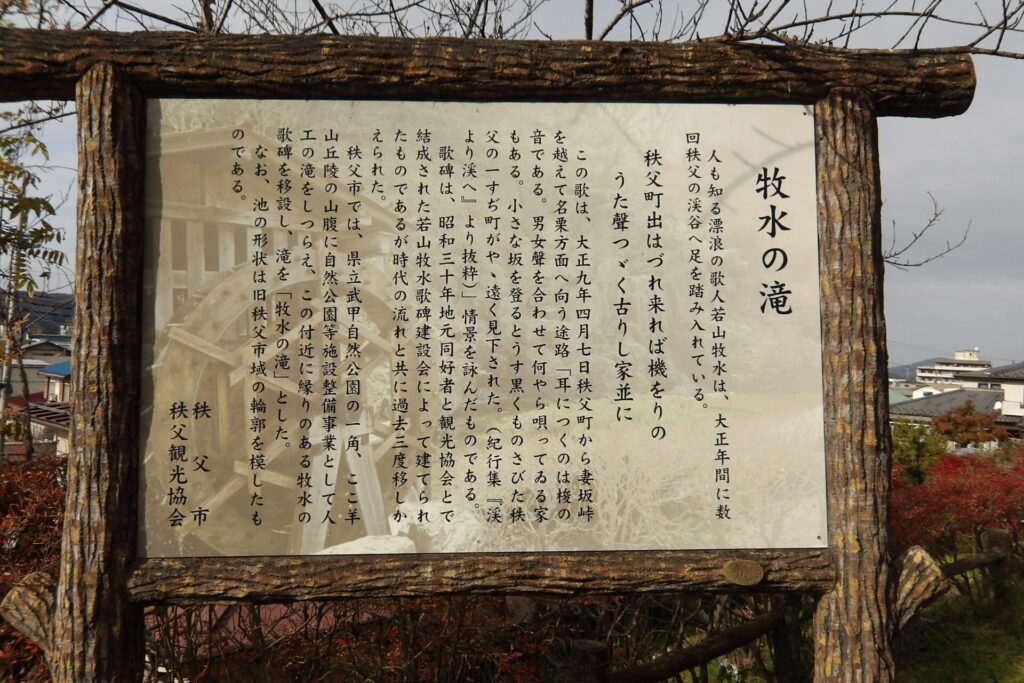 牧水の滝
人も知る漂浪の歌人若山牧水は、大正年間に数
回秩父の渓谷へ足を踏み入れている。
秩父町出はづれ来れば機をりの
うた聲つゞく古りし家並に
この歌は、大正九年四月七日秩父町から妻坂峠
を越えて名栗方面へ向う途路「耳につくのは梭の
音である。男女聲を合わせて何やら唄ってゐる家
もある。小さな坂を登るとうす黒くものさびた秩
父の一すぢ町がやゝ遠く見下された。(紀行集『渓
より渓へ』より抜粋)」情景を詠んだものである。
歌碑は、昭和三十年地元同好者と観光協会とで
結成された若山牧水歌碑建設会によって建てられ
たものであるが時代の流れと共に過去三度移しか
えられた。
秩父市では、県立武甲自然公園の一角、ここ羊
山丘陵の山腹に自然公園等施設整備事業として人
工の滝をしつらえ、この付近に縁りのある牧水の
歌碑を移設し、滝を「牧水の滝」とした。
なお、池の形状は旧秩父市域の輪郭を模したも
のである。
秩父市
秩父観光協会